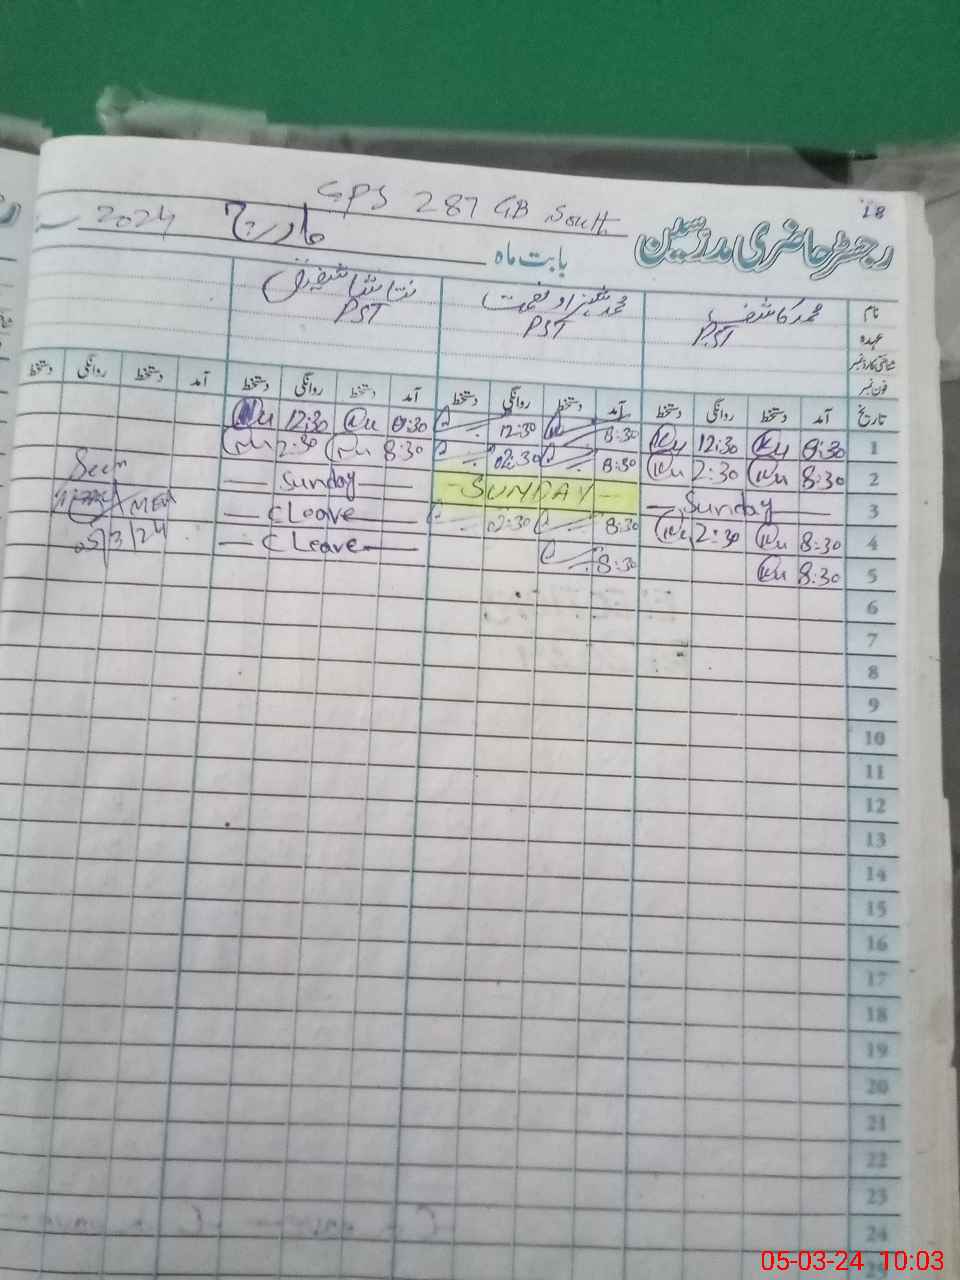 GPS 287 GB South
18
رجسٹر حاضری مدرسین
بابت ماہ مارچ 2024
نام محمد کاشف محمد شہزاد نعمت نتاشا شفیق
عہدہ PST PST PST
شناختی کارڈ نمبر
فون نمبر
تاریخ آمد دستخط روانگی دستخط آمد دستخط روانگی دستخط آمد دستخط روانگی دستخط آمد دستخط روانگی دستخط
1 8:30 12:30 8:30 12:30 8:30 12:30
2 8:30 2:30 8:30 02:30 8:30 2:30 Seen
3 Sunday SUNDAY Sunday MEA
4 8:30 2:30 8:30 02:30 C Leave 05/3/24
5 8:30 8:30 C Leave
6
7
8
9
10
11
12
13
14
15
16
17
18
19
20
21
22
23
24
25
05-03-24 10:03